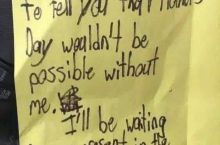 to tell you that Mother's
Day wouldn't be
possible without
me.
I'll be waiting
present in the